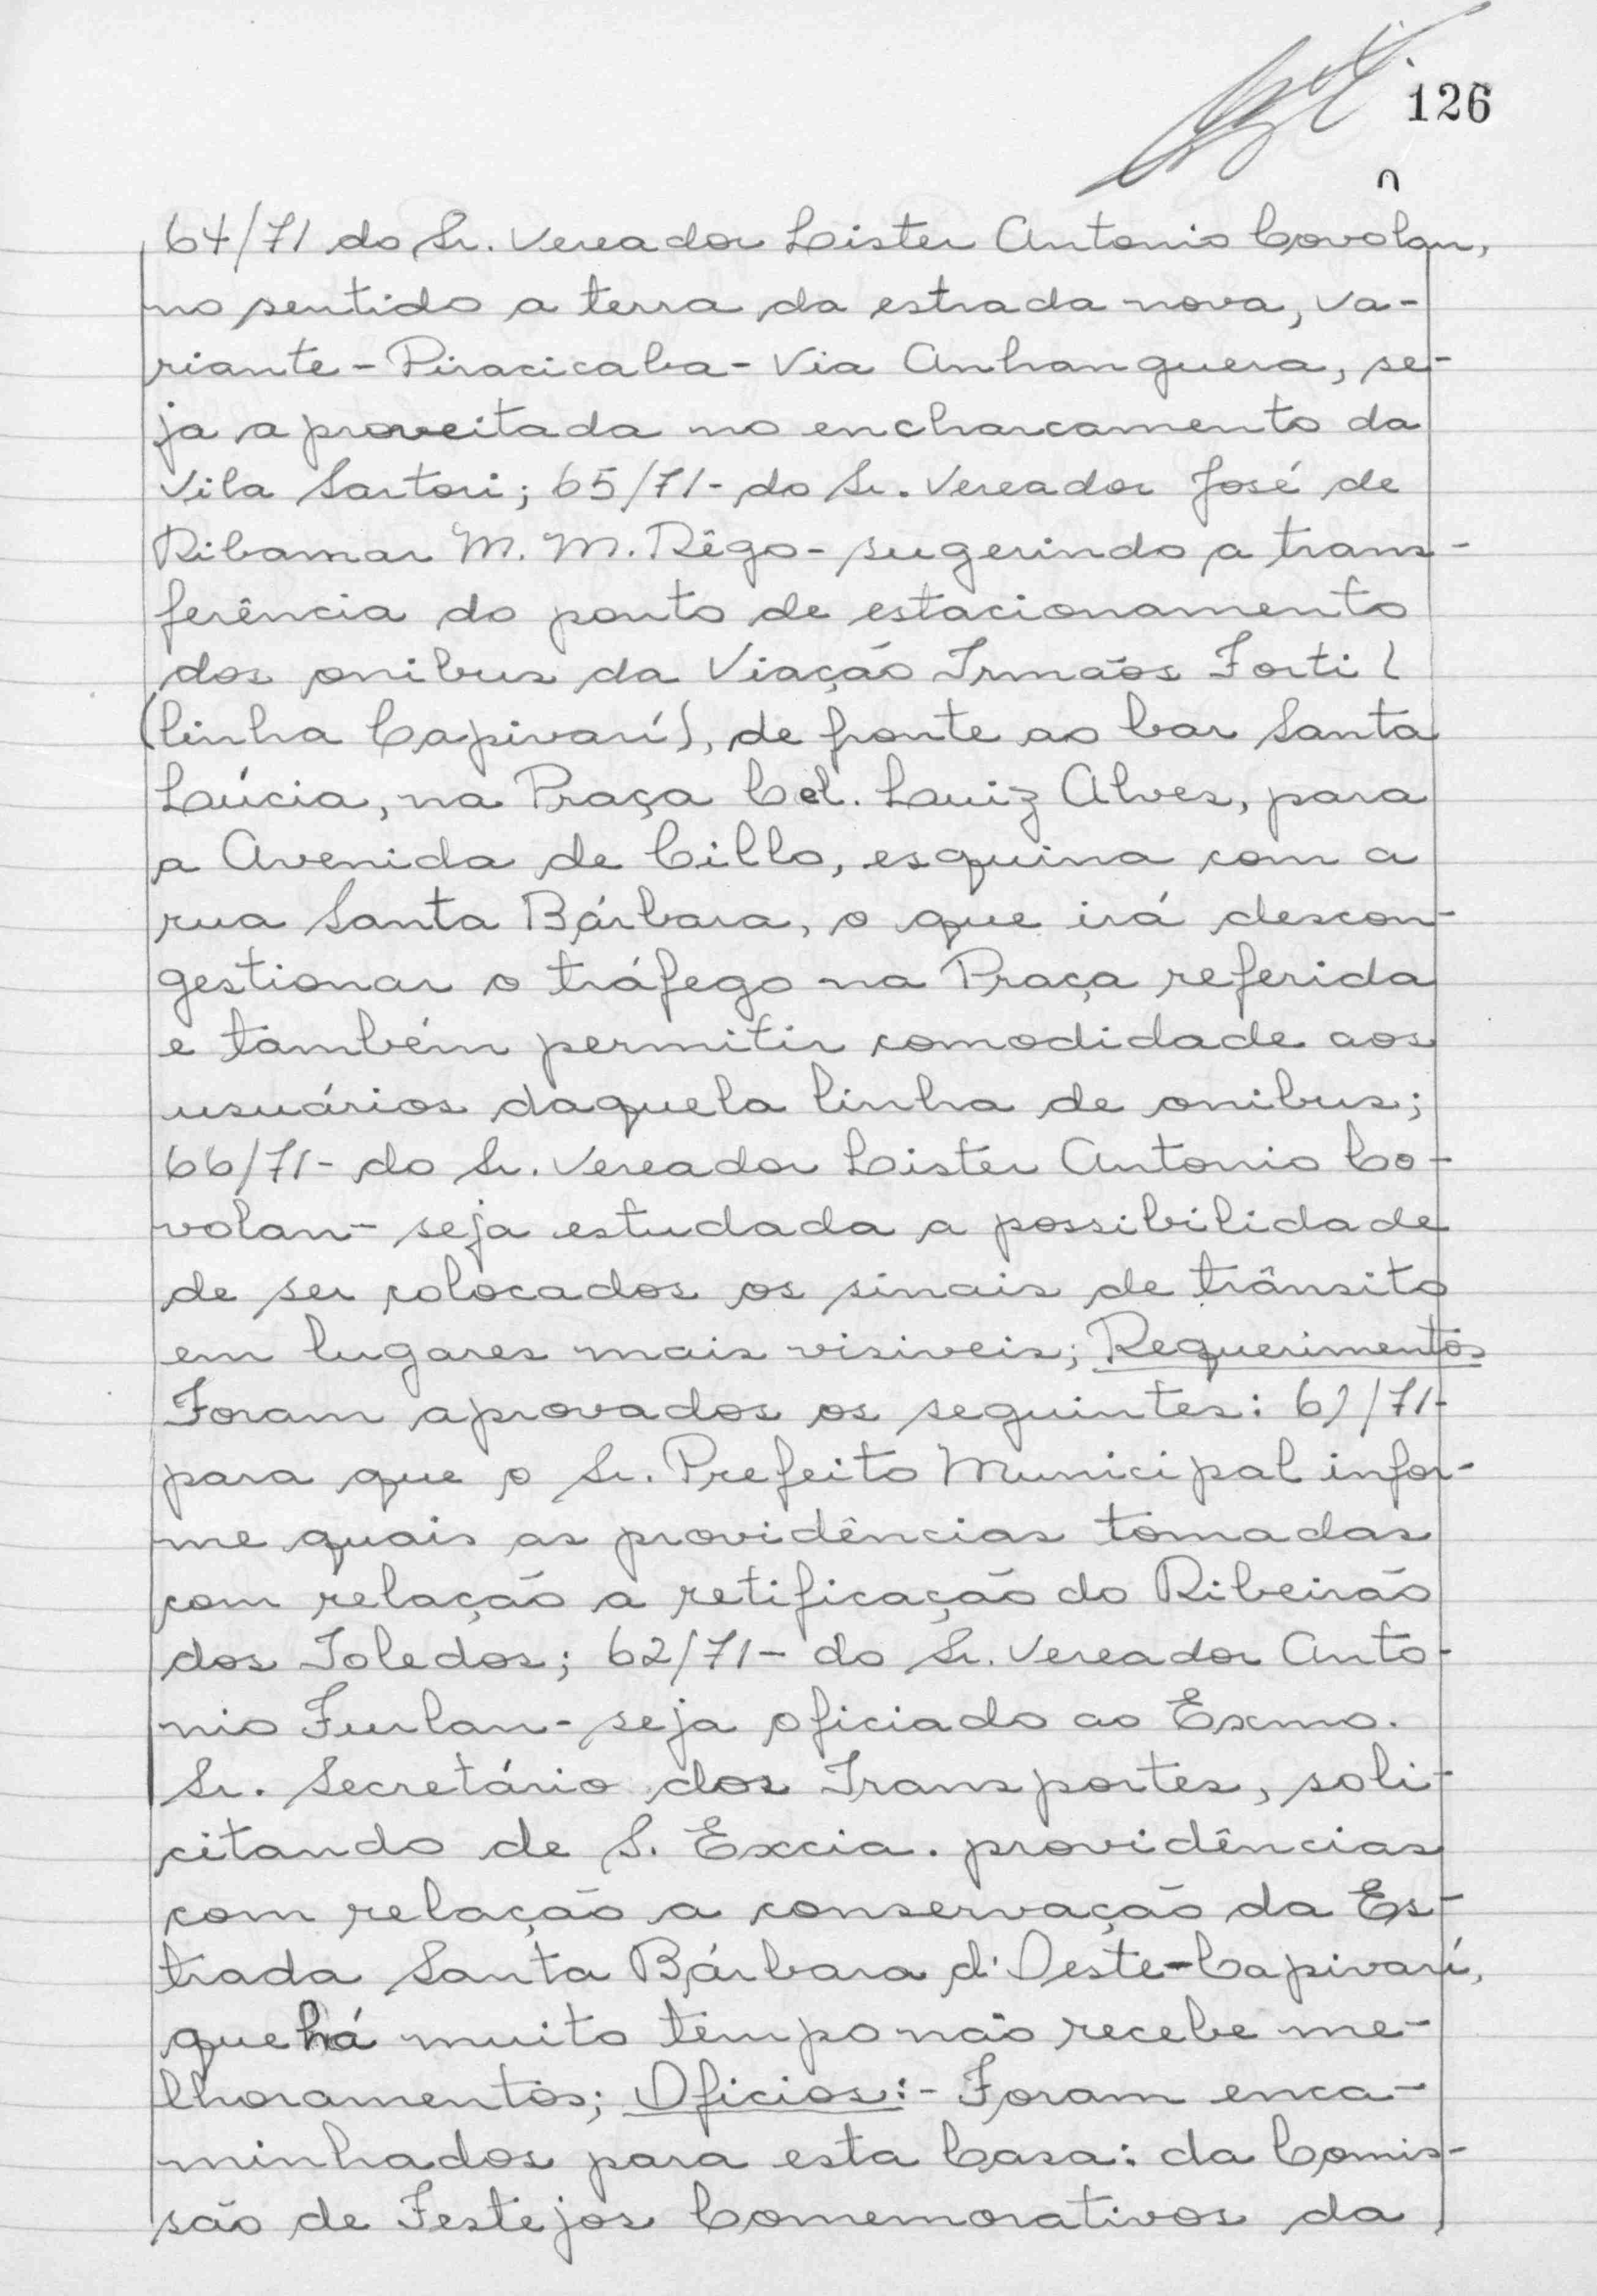 126
64/71 do Sr. Vereador Lister Antonio Covolan,
no sentido a terra da estrada nova, va-
riante - Piracicaba - Via Anhanguera, se-
ja aproveitada no encharcamento da
Vila Sartori; 65/71 - do Sr. Vereador José de
Ribamar M. M. Rêgo - sugerindo a trans-
ferência do ponto de estacionamento
dos onibus da Viação Irmãos Forti (
(linha Capivarí), de fronte ao bar Santa
Lúcia, na Praça Cel. Luiz Alves, para
a Avenida de Cillo, esquina com a
rua Santa Bárbara, o que irá descon-
gestionar o tráfego na Praça referida
e também permitir comodidade aos
usuários daquela linha de onibus;
66/71 - do Sr. Vereador Lister Antonio Co-
volan - seja estudada a possibilidade
de ser colocados os sinais de trânsito
em lugares mais visiveis; Requerimentos
Foram aprovados os seguintes: 61/71 -
para que o Sr. Prefeito Municipal infor-
me quais as providências tomadas
com relação a retificação do Ribeirão
dos Toledos; 62/71 - do Sr. Vereador Anto-
nio Furlan - seja oficiado ao Exmo.
Sr. Secretário dos Transportes, soli-
citando de S. Excia. providências
com relação a conservação da Es-
trada Santa Bárbara d'Oeste-Capivarí,
que há muito tempo não recebe me-
lhoramentos; Oficios:- Foram enca-
minhados para esta Casa: da Comis-
são de Festejos Comemorativos da